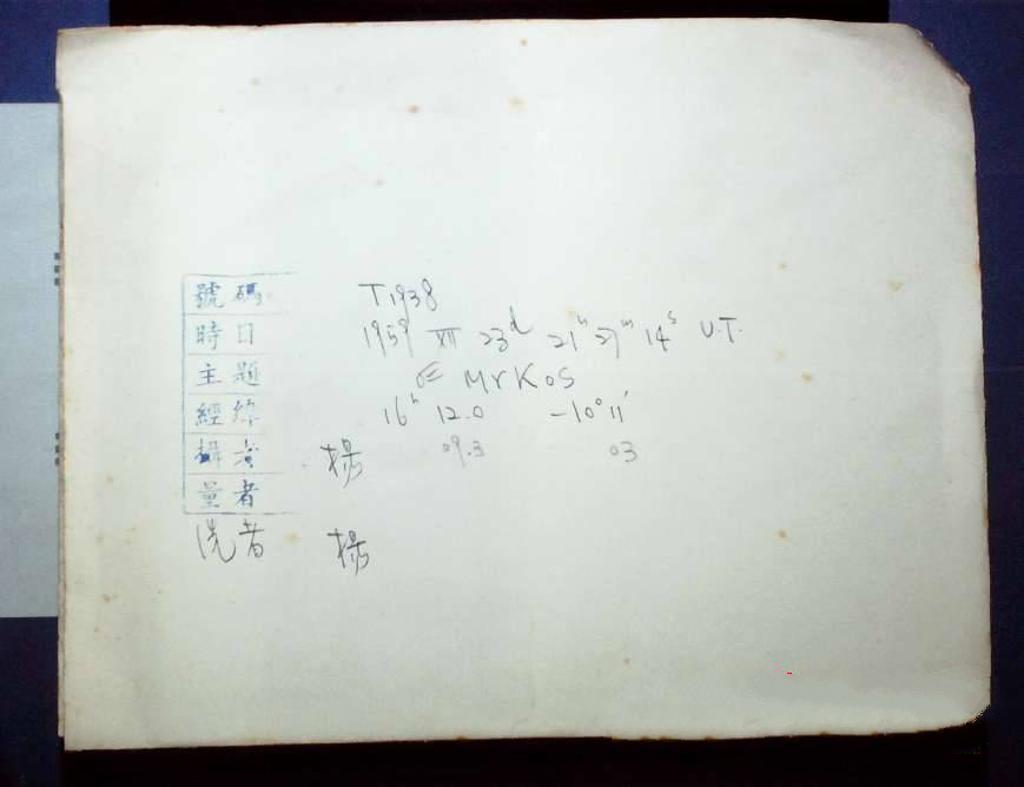 號碼 T1938
時日 1959 XII 23d 21h 27m 14s U.T.
主題 Mrkos
經緯 16h 12.0 -10°11'
攝者 楊 09.3 03
量者
洗者 楊